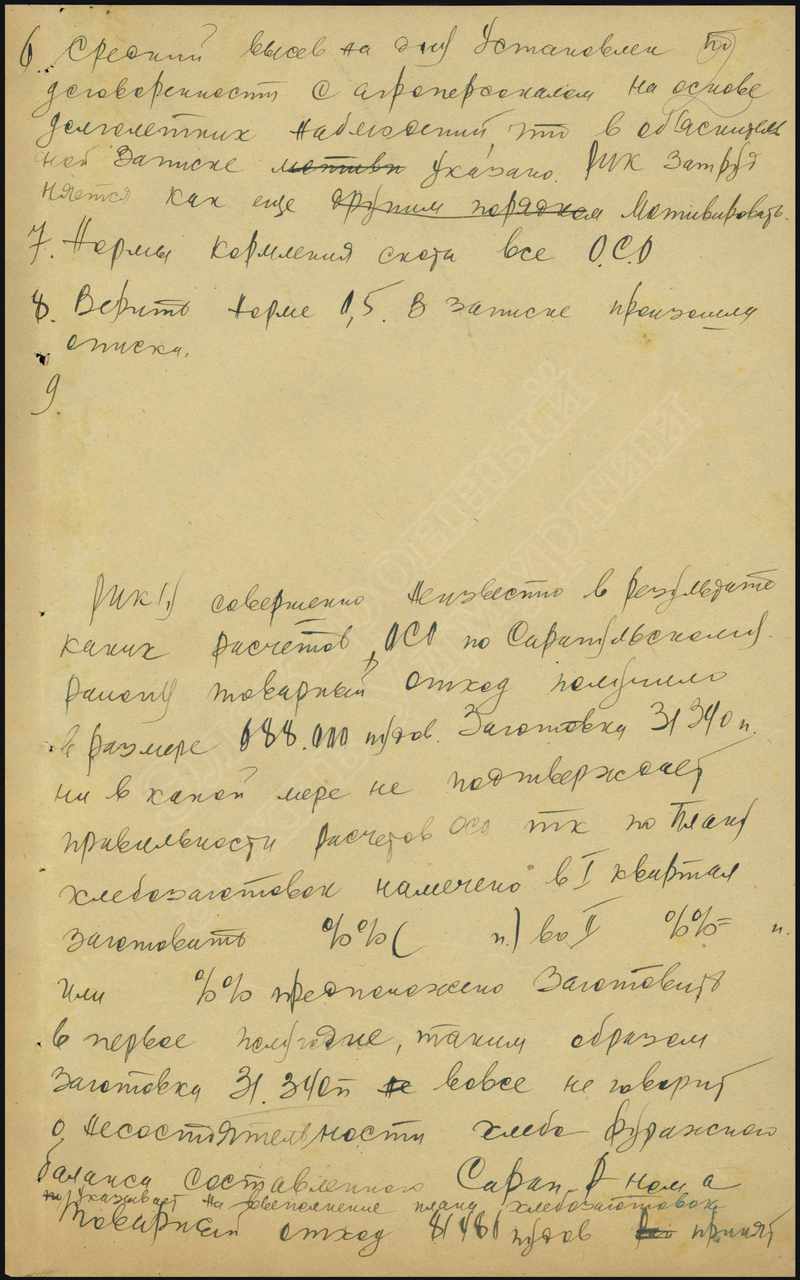 6. Средний высев на душу установлен по
договоренности с агроперсоналом на основе
долголетних наблюдений, что в объяснитель
ной записке мотивы указано. РИК затруд
няется как еще другим порядком мотивировать.
7. Нормы кормления скота все О.С.О
8. Верить норме 0,5. В записке произошла
описка.
9.
РИК'у совершенно неизвестно в результате
каких расчетов ОСО по Сарапульскому
району товарный отход получило
в размере 088.000 пудов. Заготовка 31340 п.
ни в какой мере не подтверждает
правильности расчетов ОСО тк по плану
хлебозаготовок намечено в I квартал
заготовить %% ( п.) во II %%= п.
или %% предположено заготовить
в первое полугодие, таким образом
заготовка 31.340п не вовсе не говорит
о несостоятельности хлебо фуражного
баланса составленного Сарап. Р-ном а
указывает на выполнение плана хлебозаготовок
Товарный отход пудов принят